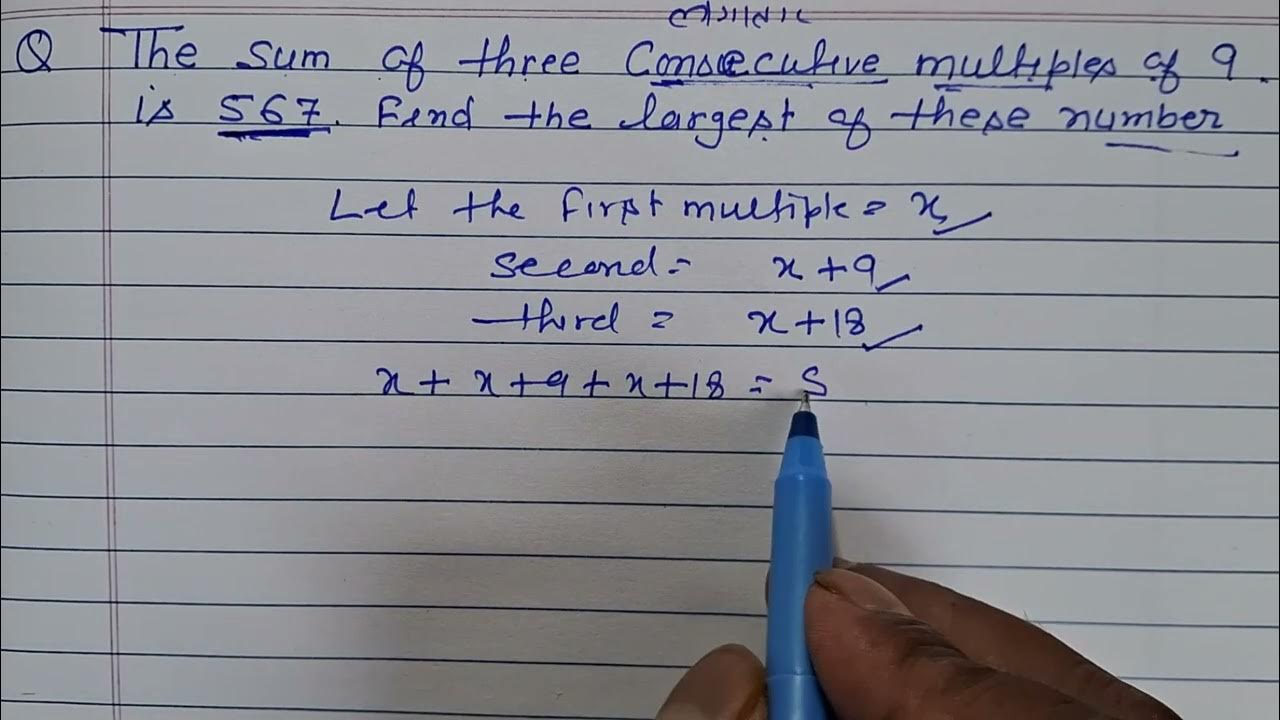 लगातार
Q The Sum of three Consecutive multiples of 9.
is 567. Find the largest of these number
Let the first multiple = x
second = x + 9
third = x + 18
x + x + 9 + x + 18 = 5